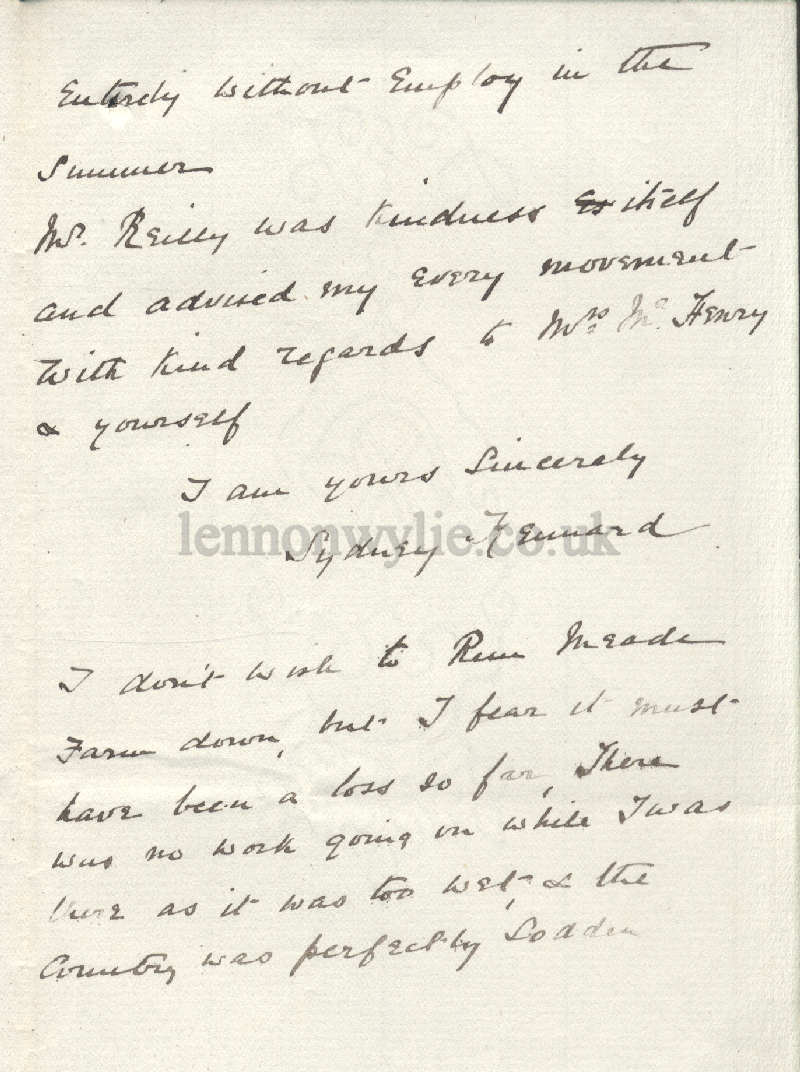 Entirely without Employ in the
Summer
Mr. Reilly was kindness itself
and advised my every movement
With kind regards to Mrs Mc Henry
& yourself
I am yours Sincerely
lennonwylie.co.uk
Sydney Kennard
I don't wish to Run Meade
Farm down, but I fear it must
have been a loss so far, There
was no work going on while I was
there as it was too wet, & the
Country was perfectly Sodden